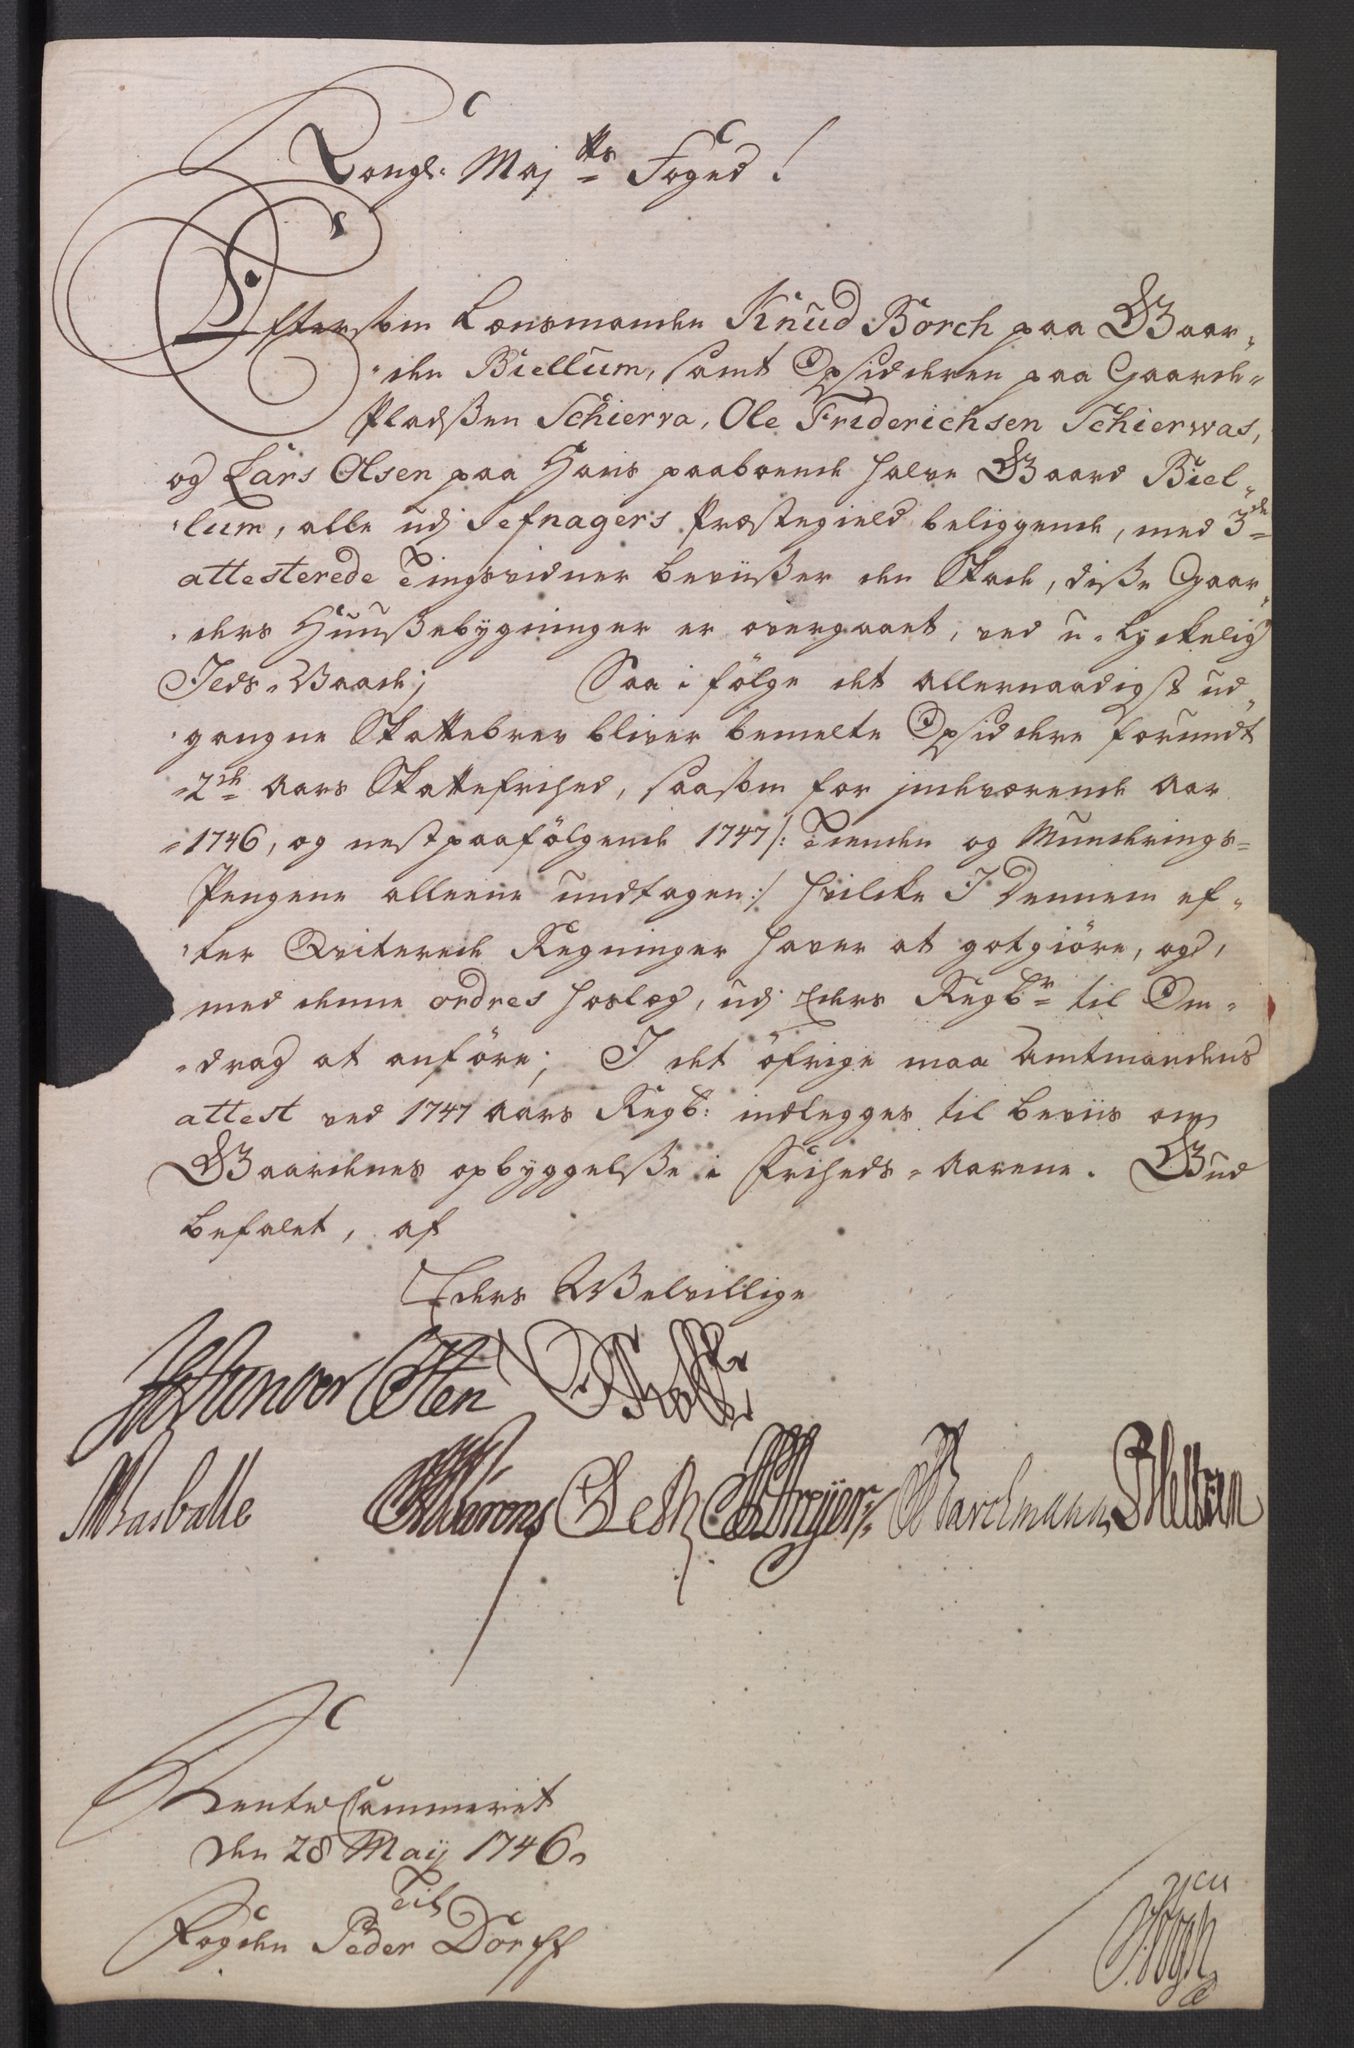 Kongl: Maj:tts Foged!
Eftersom Lensmanden Knud Borch paa Gaar-
den Biellum, samt Opsidderen paa Gaarde-
Pladssen Schierva, Ole Friderichsen Schierwas,
og Lars Olsen paa Hans paaboende halve Gaard Biel-
lum, alle udj Sefnagers Præstegield beliggende, med 3de
attesterede Tingsvidner beviisser den Skade, disse Gaar-
ders Huussebygninger er overgaaet, ved u-lyckelig
Ilds-Vaade; Saa i fölge det allernaadigst ud-
gangne Skattebrev bliver bemelte Opsiddere forundt
2de Aars Skattefrihed, saasom for indeværende Aar
1746, og nestpaafölgende 1747 /: Tienden og Munderings-
Pengene alleene undtagen :/ hvilcke I Dennem ef-
ter Qviterede Regninger haver at gotgiöre, og,
med denne ordres hoslæg, udj Eders Regb:r til Om-
drag at anföre; I det öfrige maa Amtmandens
attest ved 1747 Aars Regb: indlegges til beviis om
Gaardenes opbyggelsse i Friheds-Aarene. Gud
befalet, af
Eders Velvillige
Osten
Rasballe Barchmann
Rente Cammeret
den 28 Maij 1746.
Til
Fogden Peder Dorff